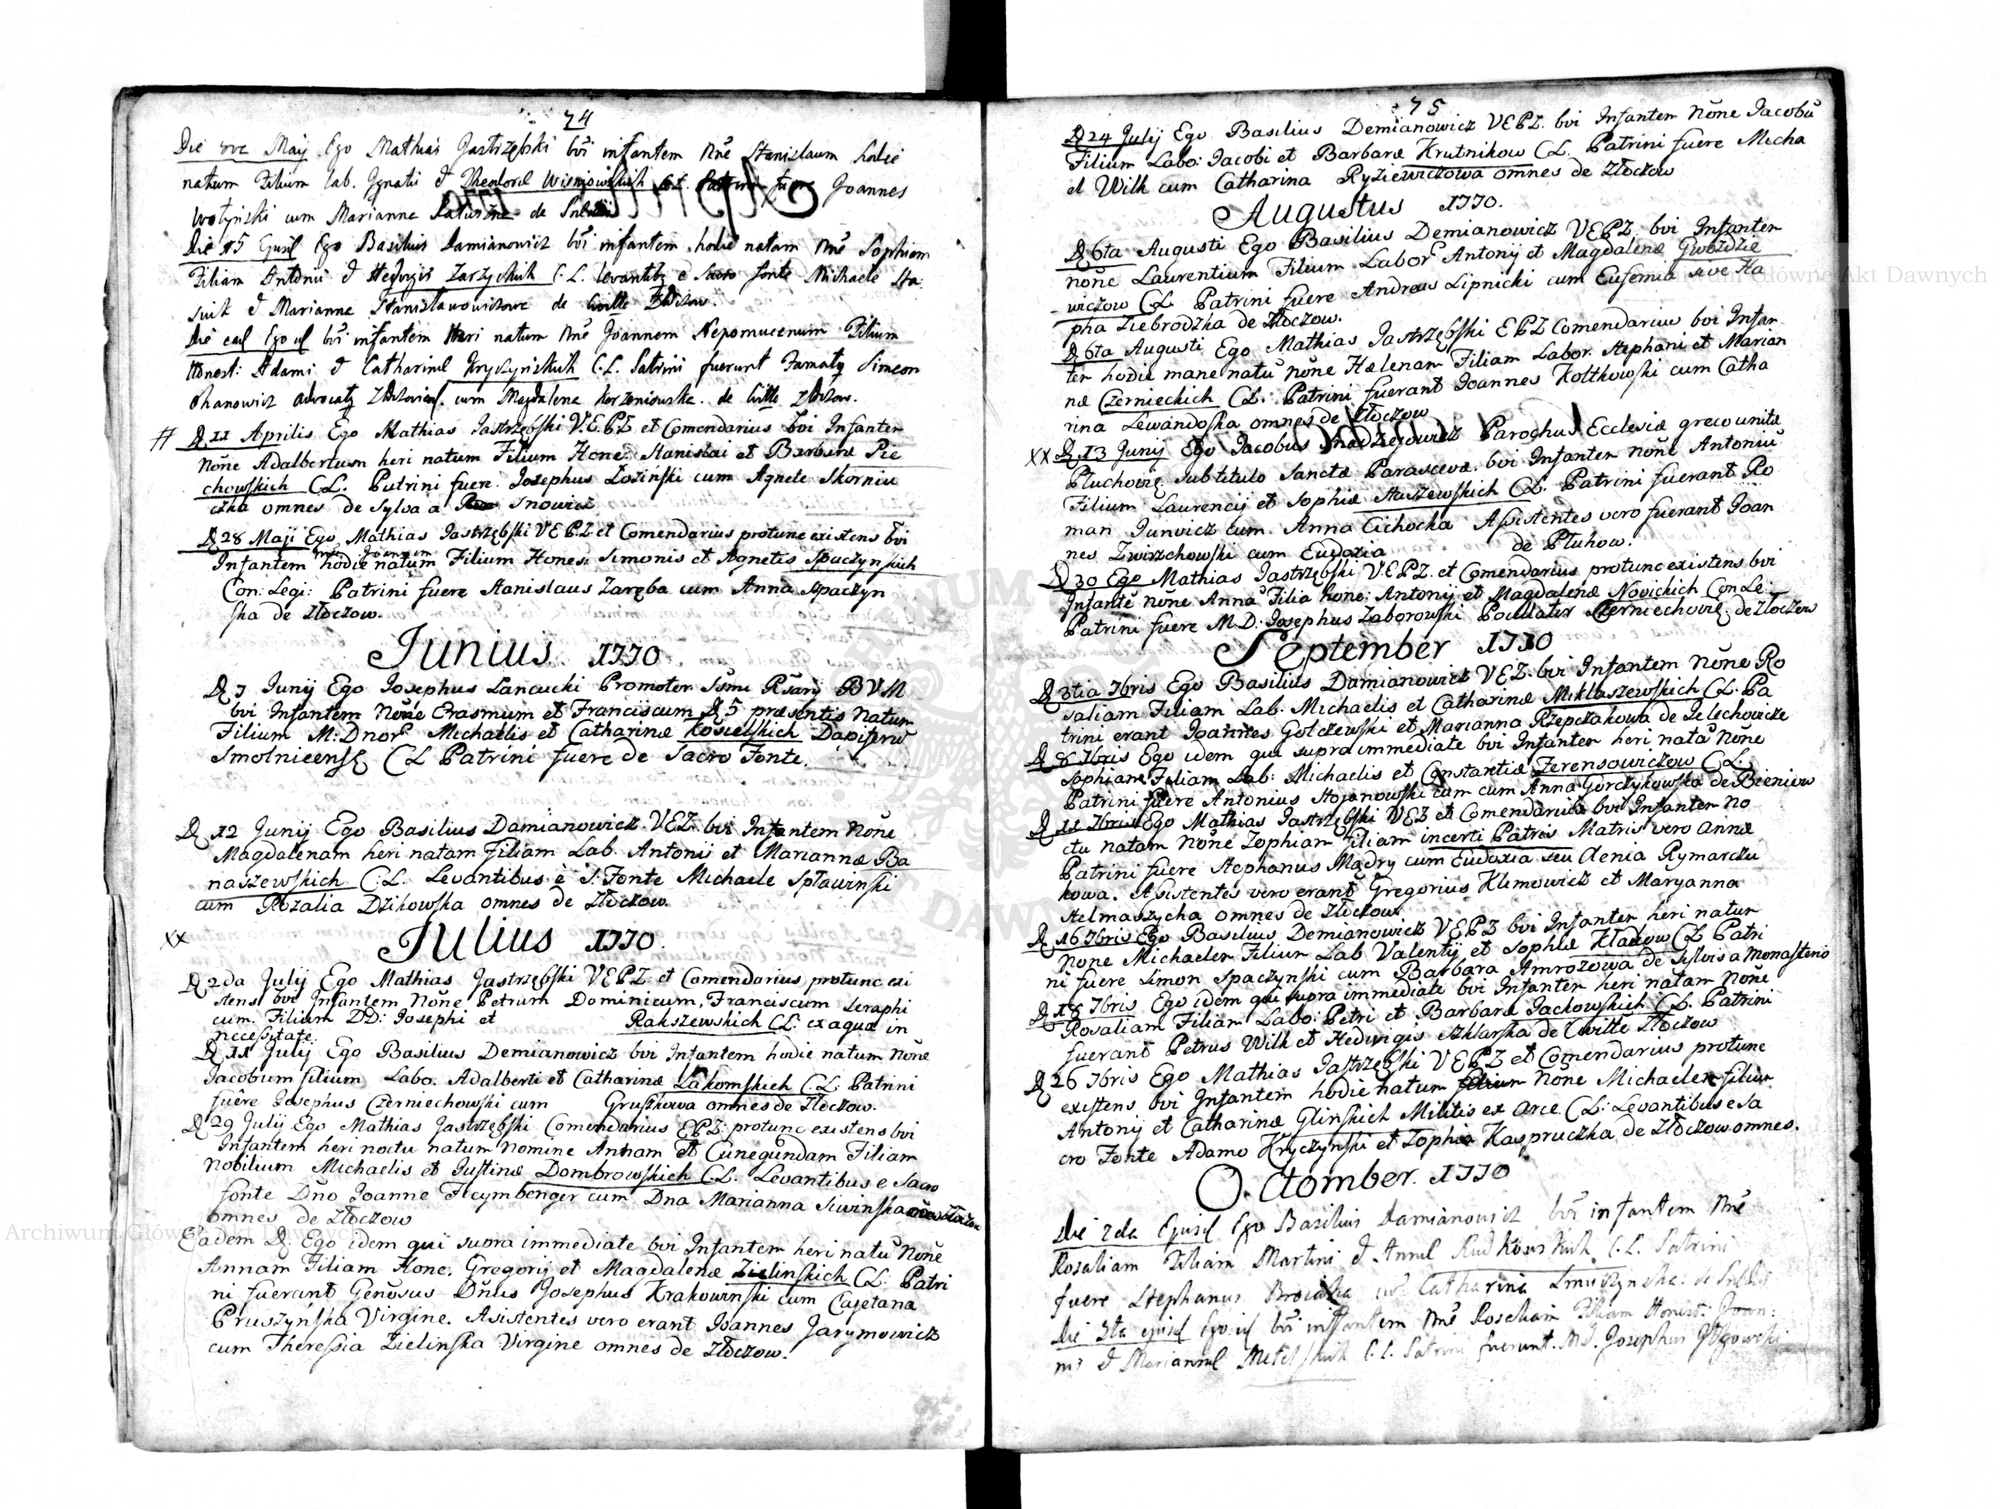 74
Die Maij Ego Mathias Jastrzębski bvi infantem Nne Stanislaum hodie
natum Filium lab. Ignatii et Theodorae Wisniowskich C.L. Patrini fuere Joannes
Wołyński cum Marianna de
Die 15 Ejusd Ego Basilius Damianowicz bvi infantem hodie natam Nne Sophiam
Filiam Antonii et Hedvigis Zarzyckich C.L. levantibus e Sacro fonte Michaele Sta
et Marianna Stanisławowiczowa de Złoczow.
Die ead Ego id bvi infantem Heri natum Nne Joannem Nepomucenum Filium
Honest: Adami et Catharinae Kryczynskich C.L. Patrini fuerunt Simeon
Ohanowicz advocatus cum Magdalena Korzeniowska de Złoczow.
# D 11 Aprilis Ego Mathias Jastrzębski V.E.P.Z et Comendarius bvi Infantem
None Adalbertum heri natum Filium Hone: Stanislai et Barbarae Pie
chowskich C.L. Patrini fuere Josephus Łoziński cum Agnete Skorniu
czka omnes de Sylva a Snowicz
D 28 Maji Ego Mathias Jastrzębski V.E.P.Z et Comendarius protunc existens bvi
nne Joannem
Infantem hodie natum Filium Hones: Simonis et Agnetis Spaczynskich
Con: Legi: Patrini fuere Stanislaus Zaręba cum Anna Spaczyn
ska de Złoczow.
Junius 1770
D 7 Junij Ego Josephus Łancucki Promotor Ssmi Rsarij B V M
bvi Infantem None Erasmum et Franciscum D 5 praesentis Natum
Filium M: Dnor Michaelis et Catharinae Kosielskich Dapiferor
Smolnicens C L Patrini fuere de Sacro Fonte.
D 12 Junij Ego Basilius Damianowicz V.E.Z. bvi Infantem None
Magdalenam heri natam Filiam Lab. Antonij et Mariannae Ba
naszewskich C.L. Levantibus è S: Fonte Michaele Spławinski
cum Rozalia Dzikowska omnes de Złoczow
xx Julius 1770.
D 2da Julij Ego Mathias Jastrzębski V E P Z et Comendarius protunc exi
stens bvi Infantem None Petrum Dominicum, Franciscum Seraphi
cum. Filium DD: Josephi et Rakszewskich C L: ex aqua in
necessitate.
D 11 Julij Ego Basilius Demianowicz bvi Infantem hodie natum None
Jacobum filium Labo. Adalberti et Catharinae Łakomskich C.L: Patrini
fuêre Josephus Czerniechowski cum Gruszkowa omnes de Złoczow.
D 29 Julij Ego Mathias Jastrzębski Comendarius E P Z: protunc existens bvi
Infantem heri noctu natum Nomine Annam et Cunegundam Filiam
Nobilium Michaelis et Justinae Dombrowskich C.L. Levantibus e Sacro
fonte Dno Joanne Heymbenger cum Dna Marianna Siwinska
omnes de Złoczow
Eadem D. Ego idem qui supra immediate bvi Infantem heri natu None
Annam Filiam Hone. Gregorij et Magdalenae Zielinskich C.L: Patri
ni fuerant Genosus Dnus Josephus Krakowinski cum Cajetana
Pruszyńska Virgine. Asistentes vero erant Joannes Jarymowicz
cum Theressia Zielinska Virgine omnes de Złoczow.
75
D 24 Julij Ego Basilius Demianowicz V E P Z. bvi Infantem None Jacobu
Filium Labo: Jacobi et Barbarae Krutnikow C L. Patrini fuere Micha
el Wilk cum Catharina Ryziewiczowa omnes de Złoczow
Augustus 1770.
D 6ta Augusti Ego Basilius Demianowicz V E P Z. bvi Infantem
none Laurentium Filium Labor Antonij et Magdalenae Gwozdzie
wiczow C L Patrini fuere Andreas Lipnicki cum Eufemia sive Ha
pha Ziebrodzka de Złoczow.
D 6ta Augusti Ego Mathias Jastrzębski E P Z Comendarius bvi Infan
tem hodie mane natu None Helenam Filiam Labor. Stephani et Marian
nae Czernieckich C.L: Patrini fuerant Joannes Kołtkowski cum Catha
rina Lewandoska omnes de Złoczow
xx D 13 Junij Ego Jacobus Parochus Ecclesiae graeco unitae
Pluchovie Subtitulo Sanctae Parascevae. bvi Infantem None Antoniu
Filium Laurencij et Sophiae Staszewskich C L: Patrini fuerant Ro
man Junwicz cum Anna Cichocka Assistentes vero fuerant Joan
nes Zwirzchowski cum Eudoxia de Pluhow.
D 30 Ego Mathias Jastrzębski V E P Z. et Comendarius protunc existens bvi
Infante none Anna Filia hone: Antonij et Magdalenae Novickich Con Le:
Patrini fuere M. D: Josephus Zaborowski Pocillator Czerniechovie: de Złoczow
September 1770
D 3tia 7bris Ego Basilius Damianowicz V E Z. bvi Infantem None Ro
saliam Filiam Lab. Michaelis et Catharinae Miklaszewskich C L. Pa
trini erant Joannes Golczewski et Marianna Rzepczakowa de Jelechowicze
D 8 7bris Ego idem qui supra immediate bvi Infantem heri nata None
Sophiam Filiam Lab: Michaelis et Constantiae Ferensowiczow C L.
Patrini fuere Antonius Stojanowski cum cum Anna Gorczykowska de Bieniow
D 11 7bris Ego Mathias Jastrzębski V E Z et Comendarius bvi Infantem No
ctu natam None Zophiam filiam incerti Patris Matris vero Annae
Patrini fuere Stephanus Mądry cum Eudoxia seu Aenia Rymarczu
kowa. Asistentes vero erant Gregorius Klimowicz et Maryanna
Stelmaszycha omnes de Złoczow.
D 16 7bris Ego Basilius Demianowicz V E P Z bvi Infantem heri natum
None Michaelem Filium Lab Valentij et Sophiae Kładow C L Patri
ni fuere Simon Spaczynski cum Barbara Amrozowa de Sylvis a Monasterio
D 18 7bris Ego idem qui supra immediate bvi Infantem heri natam None
Rosaliam Filiam Labo: Petri et Barbara Jackowskich C L. Patrini
fuerant Petrus Wilk et Hedwigis Szklarska de Civitte Złoczow
D 26 7bris Ego Mathias Jastrzębski V E P Z et Comendarius protunc
existens bvi Infantem hodie natum None Michaelem filium
Antonij et Catharinae Glinskich Militis ex Arce C L: Levantibus e Sa
cro Fonte Adamo Kryczynski et Zophia Kaspruczka de Złoczow omnes.
Octomber. 1770
Die 2da Ejusd Ego Basilius Damianowicz bvi infantem Nne
Rosaliam Filiam Martini et Annae Rudkowskich C.L. Patrini
fuere Stephanus cum Catharina
Die 3tia ejusd Ego id bvi infantem Nne Rosaliam Filiam Honest. Joan:
nis et Mariannae C.L. Patrini fuerunt. M D. Josephus